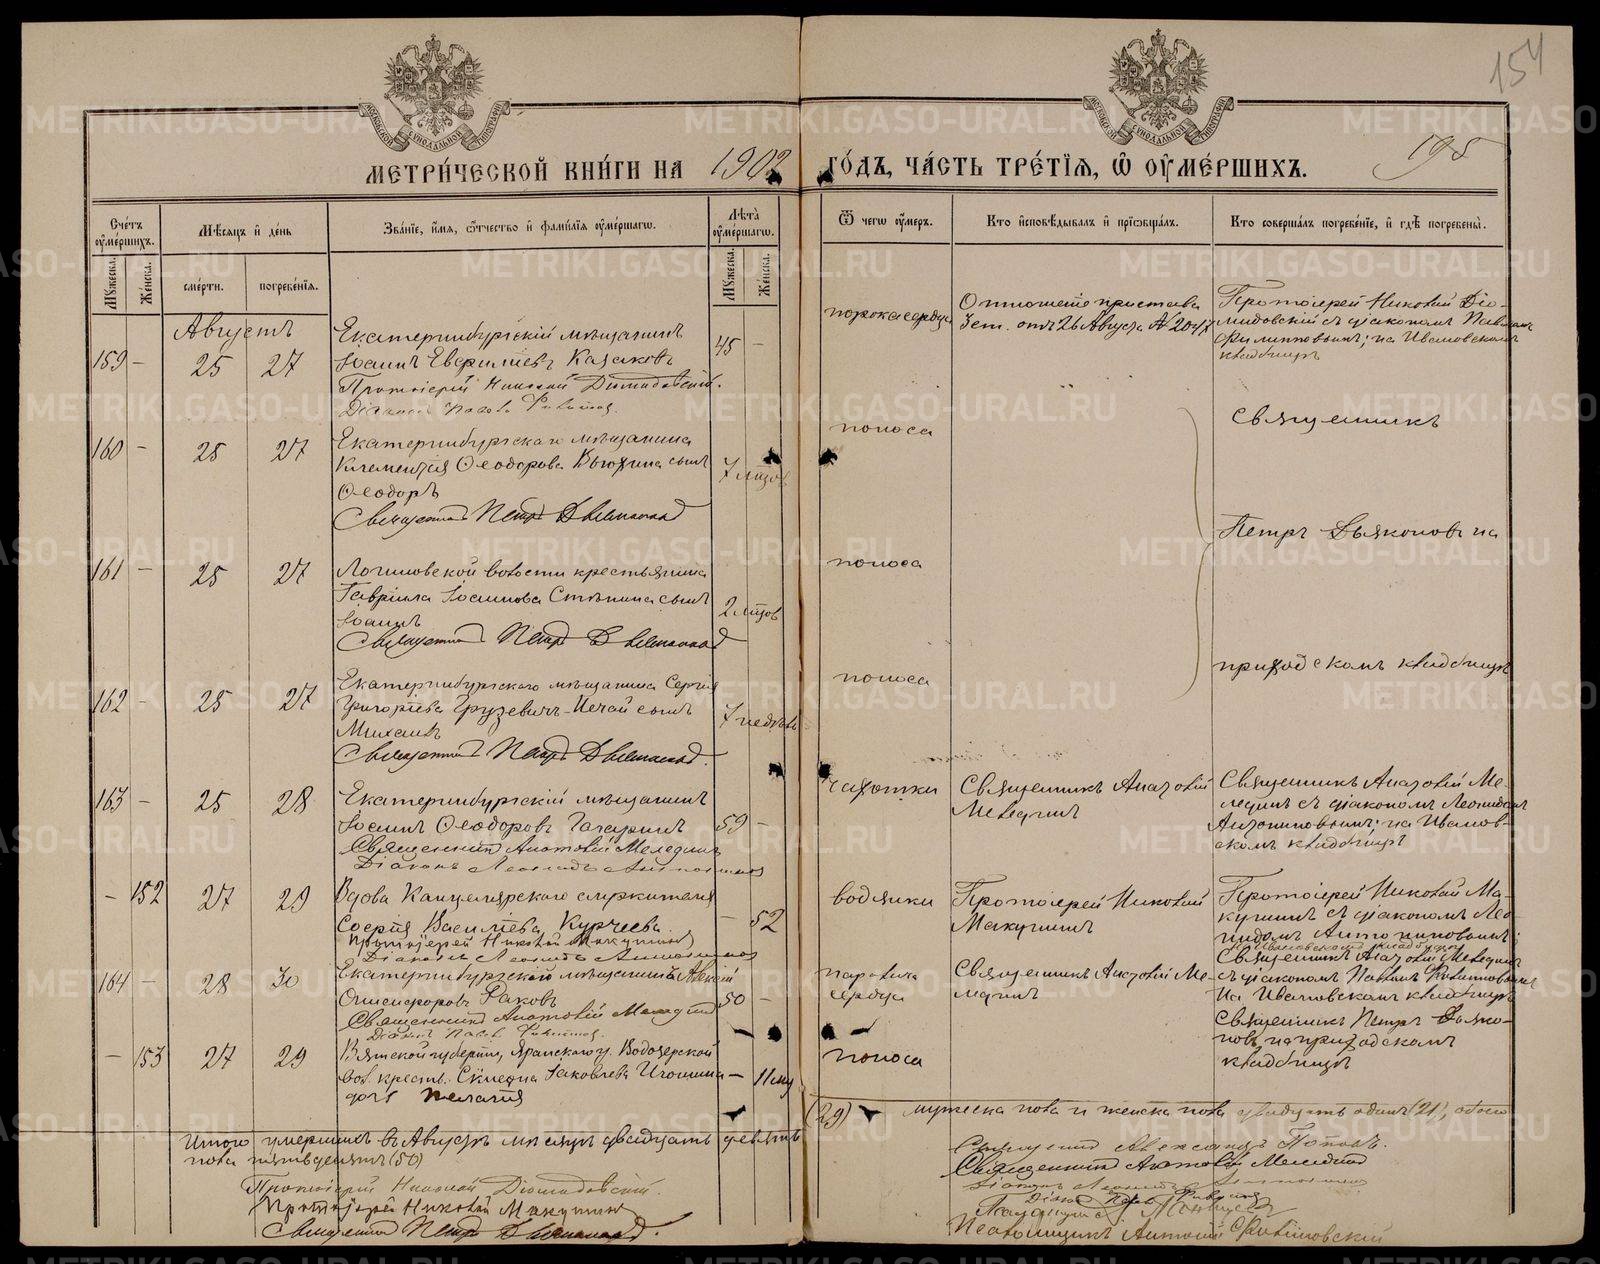 154
195
МЕТРИ́ЧЕСКОЙ КНИ́ГИ НА 1902 ГО́ДЪ, ЧА́СТЬ ТРЕ́ТЇѦ, Ѡ҆ ОУ҆МЕ́РШИХЪ.
Сче́тъ оу҆ме́ршихъ.
Мѣ́сѧцъ и҆ де́нь
Зва́нїе, и҆́мѧ, ѻ҆́тчество и҆ фами́лїѧ оу҆ме́ршагѡ.
Лѣ́та оу҆ме́ршагѡ.
Ѿ чегѡ̀ оу҆́меръ.
Кто̀ и҆сповѣ́дывалъ и҆ прїѡбща́лъ.
Кто̀ соверша́лъ погребе́нїе, и҆ гдѣ̀ погребены̀.
Му́жеска.
Же́нска.
сме́рти.
погребе́нїѧ.
Му́жеска.
Же́нска.
Августъ
159 – 25 27
Екатеринбургскій мѣщанинъ
Іоаннъ Казаковъ
Протоіерей Николай Діомидовскій.
Діаконъ Павелъ
45 –
порока сердца
Отношеніе пристава
3 ст. отъ 26 Августа № 2047
Протоіерей Николай Діо-
мидовскій съ діакономъ Павломъ
Филипповымъ; на Ивановскомъ
кладбищѣ
160 – 25 27
Екатеринбургскаго мѣщанина
Климентія Ѳеодорова сынъ
Ѳеодоръ
Священникъ Петръ Дьяконовъ
7 мѣсяц
поноса
Священникъ
161 – 25 27
Логиновской волости крестьянина
Гавріила Іоаннова Степина сынъ
Іоаннъ
Священникъ Петръ Дьяконовъ
2 мѣсяц
поноса
Петръ Дьяконовъ на
162 – 25 27
Екатеринбургскаго мѣщанина Сергія
Григорьева Грузевичъ-Нечай сынъ
Михаилъ
Священникъ Петръ Дьяконовъ.
7 недѣль
поноса
приходскомъ кладбищѣ
163 – 25 28
Екатеринбургскій мѣщанинъ
Іоаннъ Ѳеодоровъ
Священникъ Анатолій Мелединъ
Діаконъ Леонидъ Антониновъ
59 –
чахотки
Священникъ Анатолій
Мелединъ
Священникъ Анатолій Ме-
лединъ съ діакономъ Леонидомъ
Антониновымъ; на Иванов-
скомъ кладбищѣ
– 152 27 29
Вдова Канцелярскаго служителя
Софія Васильева Курчеева
Протоіерей Николай Макушинъ
Діаконъ Леонидъ Антониновъ
– 52
водянки
Протоіерей Николай
Макушинъ
Протоіерей Николай Ма-
кушинъ съ діакономъ Лео-
нидомъ Антониновымъ;
на Ивановскомъ кладбищѣ
164 – 28 30
Екатеринбургскій мѣщанинъ Алексій
Онисифоровъ Раковъ
Священникъ Анатолій Мелединъ
Діаконъ Павелъ
50 –
паралича
сердца
Священникъ Анатолій Ме-
лединъ
Священникъ Анатолій Мелединъ
съ діакономъ Павломъ Филипповымъ
на Ивановскомъ кладбищѣ
– 153 27 29
Вятской губерніи, Яранскаго у. Водозерской
вол. крест. Іаковлева Игошина
дочь Пелагія
– 11 мц
поноса
Священникъ Петръ Дьяко-
новъ на приходскомъ
кладбищѣ
Итого умершихъ въ Августѣ мѣсяцѣ двадцать девять
(29) мужеска пола и женска пола двадцать одинъ (21), обоего
пола пятьдесятъ (50)
Протоіерей Николай Діомидовскій.
Протоіерей Николай Макушинъ
Священникъ Петръ Дьяконовъ.
Священникъ Александръ Поповъ.
Священникъ Анатолій Мелединъ
Діаконъ Леонидъ Антониновъ
Діаконъ Павелъ
Псаломщикъ
Псаломщикъ Антоній
METRIKI.GASO-URAL.RU